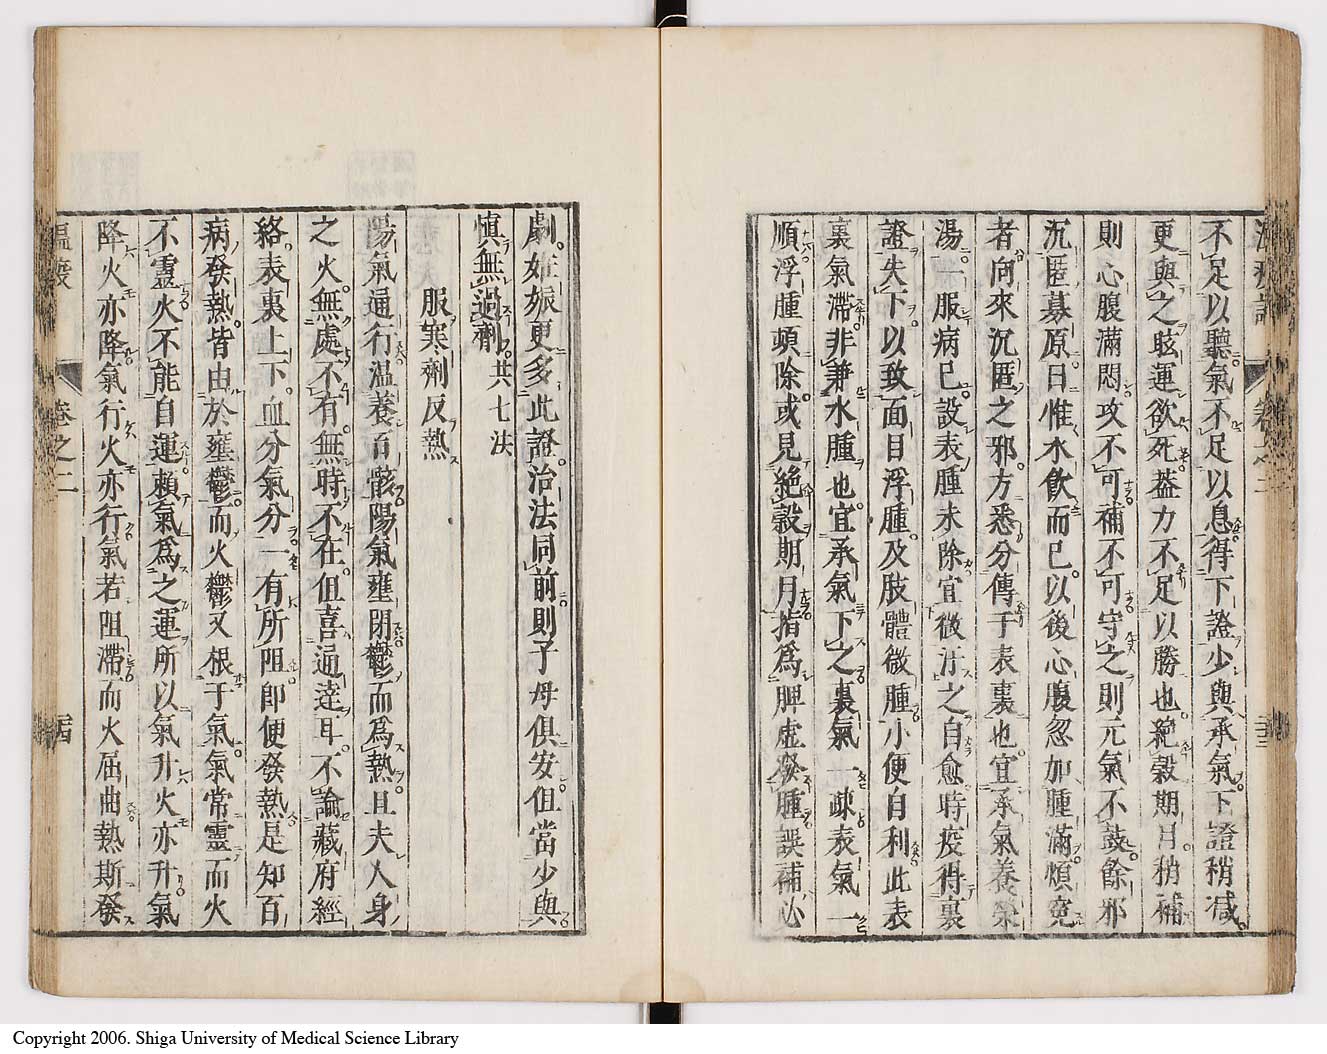 不足以聽氣不足以息得下證少與承氣下證稍减
更與之眩運欲死葢力不足以勝也絶穀期月稍補
則心腹滿悶攻不可補不可守之則元氣不鼓餘邪
沉匿募原日惟水飲而已以後心腹忽加腫滿煩寃
者向來沉匿之邪方悉分傳于表裏也宜承氣養榮
湯一服病已設表腫未除宜微汗之自愈時疫得裏
證失下以致面目浮腫及肢體微腫小便自利此表
裏氣滯非兼水腫也宜承氣下之裏氣一疎表氣一
順浮腫頓除或見絶穀期月指爲脾虚發腫誤補必
劇妊娠更多此證治法同前則子母俱安但當少與
慎無過劑共七法
服寒劑反熱
陽氣通行温養百骸陽氣壅閉鬱而爲熱且夫人身
之火無處不有無時不在但喜通達耳不論藏府經
絡表裏上下血分氣分一有所阻即便發熱是知百
病發熱皆由於壅鬱而火鬱又根于氣氣常靈而火
不靈火不能自運賴氣爲之運所以氣升火亦升氣
降火亦降氣行火亦行氣若阻滯而火屈曲熱斯發
卷之二
Copyright 2006. Shiga University of Medical Science Library